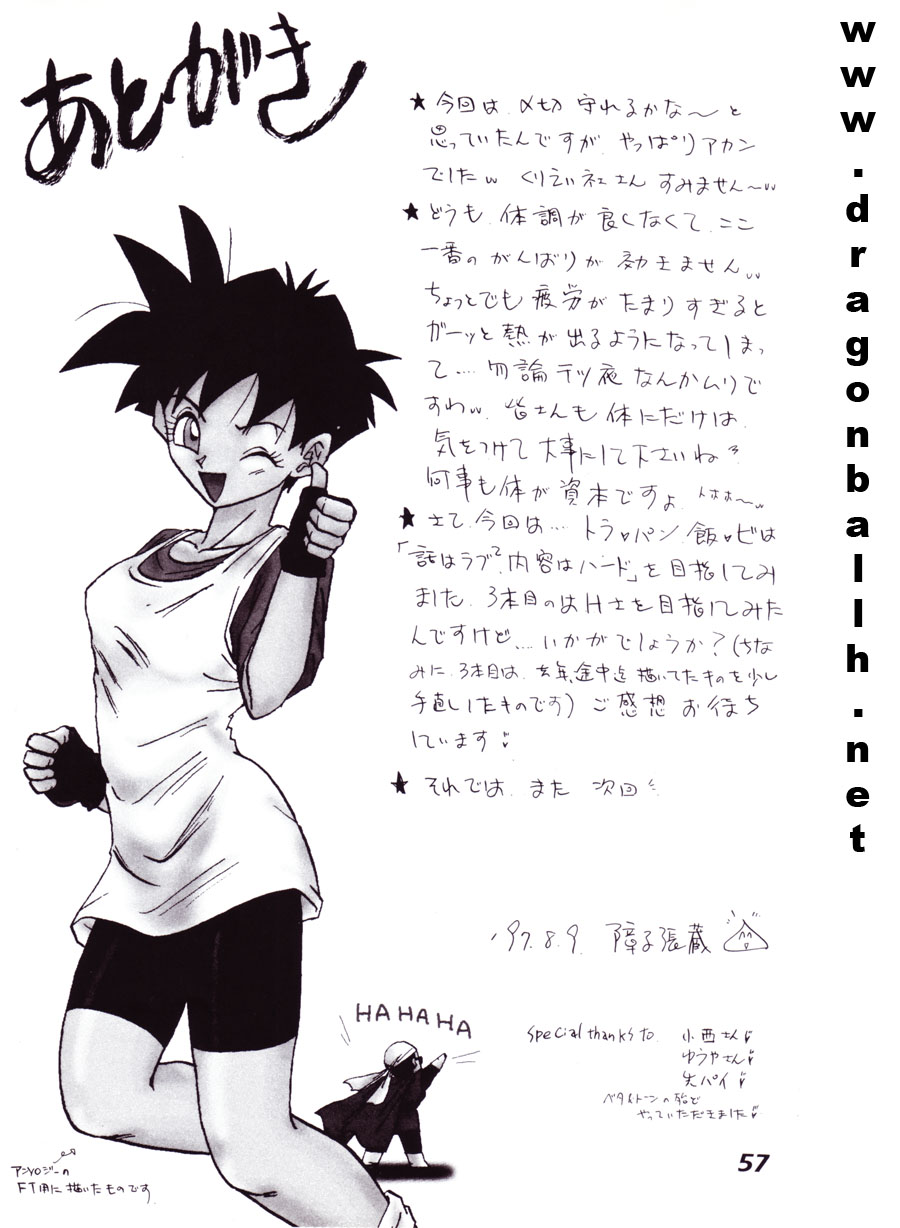 あとがき
★今回は、〆切守れるかな〜と
思っていたんですが、やっぱりアカン
でしたw くりえい社さんすみません〜
★どうも、体調が良くなくて、ここ
一番のがんばりが効きません
ちょっとでも疲労がたまりすぎると
ガーッと熱が出るようになってしまっ
て…. 勿論テツ夜なんかムリで
すわw. 皆さんも体にだけは、
気をつけて大事にして下さいね
何事も体が資本ですよ トホホ〜
★さて、今回は… トラ♥パン、飯♥ビは
「話はラブ、内容はハード」を目指してみ
ました。3本目のはHさを目指してみた
んですけど…いかがでしょうか?(ちな
みに、3本目は、去年途中迄描いてたものを少し
手直ししたものです)ご感想お待ち
しています
★それでは、また次回
'97.8.9. 障子張蔵
HA HA HA HA
special thanks to. 小西さん
ゆうやさん
大パイ
ベタ&トーンの殆ど
やっていただきました
アンソロジーの
FT用に描いたものです
57
www.dragonballh.net